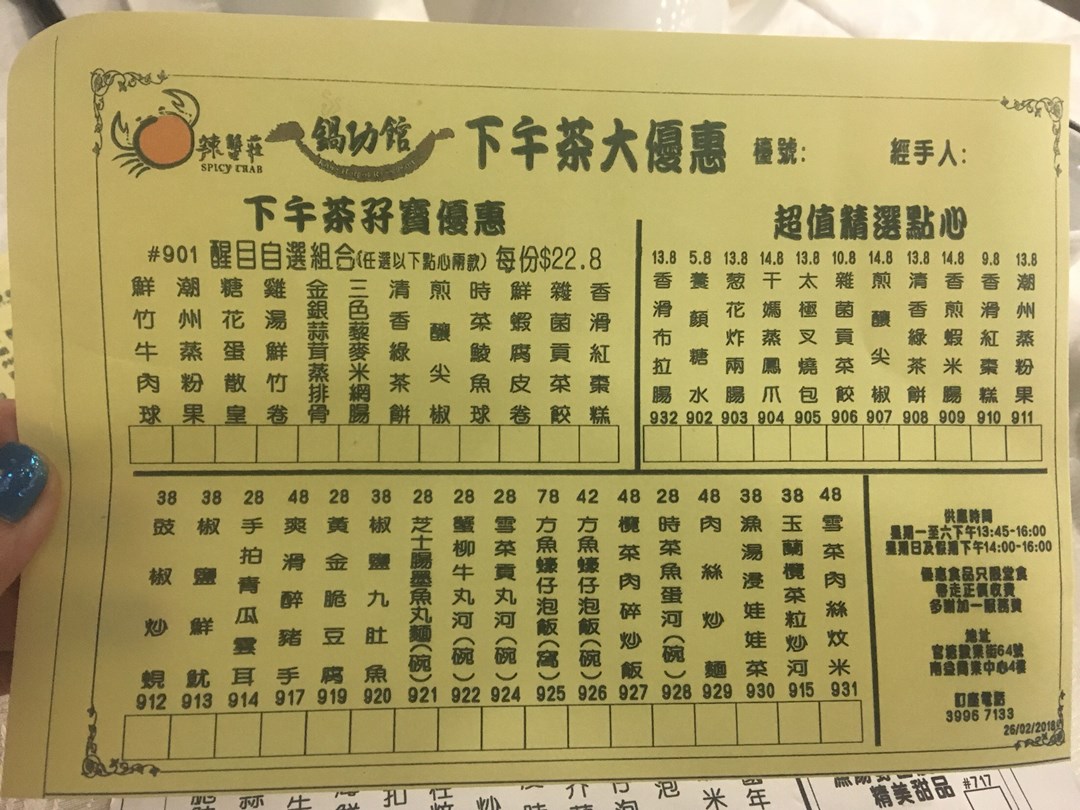 辣蟹莊
SPICY CRAB
鍋功館
下午茶大優惠
檯號:
經手人:
下午茶孖寶優惠
#901 醒目自選組合(任選以下點心兩款) 每份$22.8
鮮竹牛肉球
潮州蒸粉果
糖花蛋散皇
雞湯鮮竹卷
金銀蒜茸蒸排骨
三色藜麥米網腸
清香綠茶餅
煎釀尖椒
時菜鯪魚球
鮮蝦腐皮卷
雜菌貢菜餃
香滑紅棗糕
超值精選點心
13.8 香滑布拉腸 932
5.8 養顏糖水 902
13.8 葱花炸兩腸 903
14.8 干媽蒸鳳爪 904
13.8 太極叉燒包 905
10.8 雜菌貢菜餃 906
14.8 煎釀尖椒 907
13.8 清香綠茶餅 908
14.8 香煎蝦米腸 909
9.8 香滑紅棗糕 910
13.8 潮州蒸粉果 911
38 豉椒炒蜆 912
38 椒鹽鮮魷 913
28 手拍青瓜雲耳 914
48 爽滑醉豬手 917
28 黃金脆豆腐 919
38 椒鹽九肚魚 920
28 芝士腸墨魚丸麵(碗) 921
28 蟹柳牛丸河(碗) 922
28 雪菜貢丸河(碗) 924
78 方魚蠔仔泡飯(窩) 925
42 方魚蠔仔泡飯(碗) 926
48 欖菜肉碎炒飯 927
28 時菜魚蛋河(碗) 928
48 肉絲炒麵 929
38 漁湯浸娃娃菜 930
38 玉蘭欖菜粒炒河 915
48 雪菜肉絲炆米 931
供應時間
星期一至六下午13:45-16:00
星期日及假期下午14:00-16:00
優惠食品只限堂食
帶走正價收費
多謝加一服務費
地址
官塘鴻業街64號
南益商業中心4樓
訂座電話
3996 7133
26/02/2018
精美甜品
#717